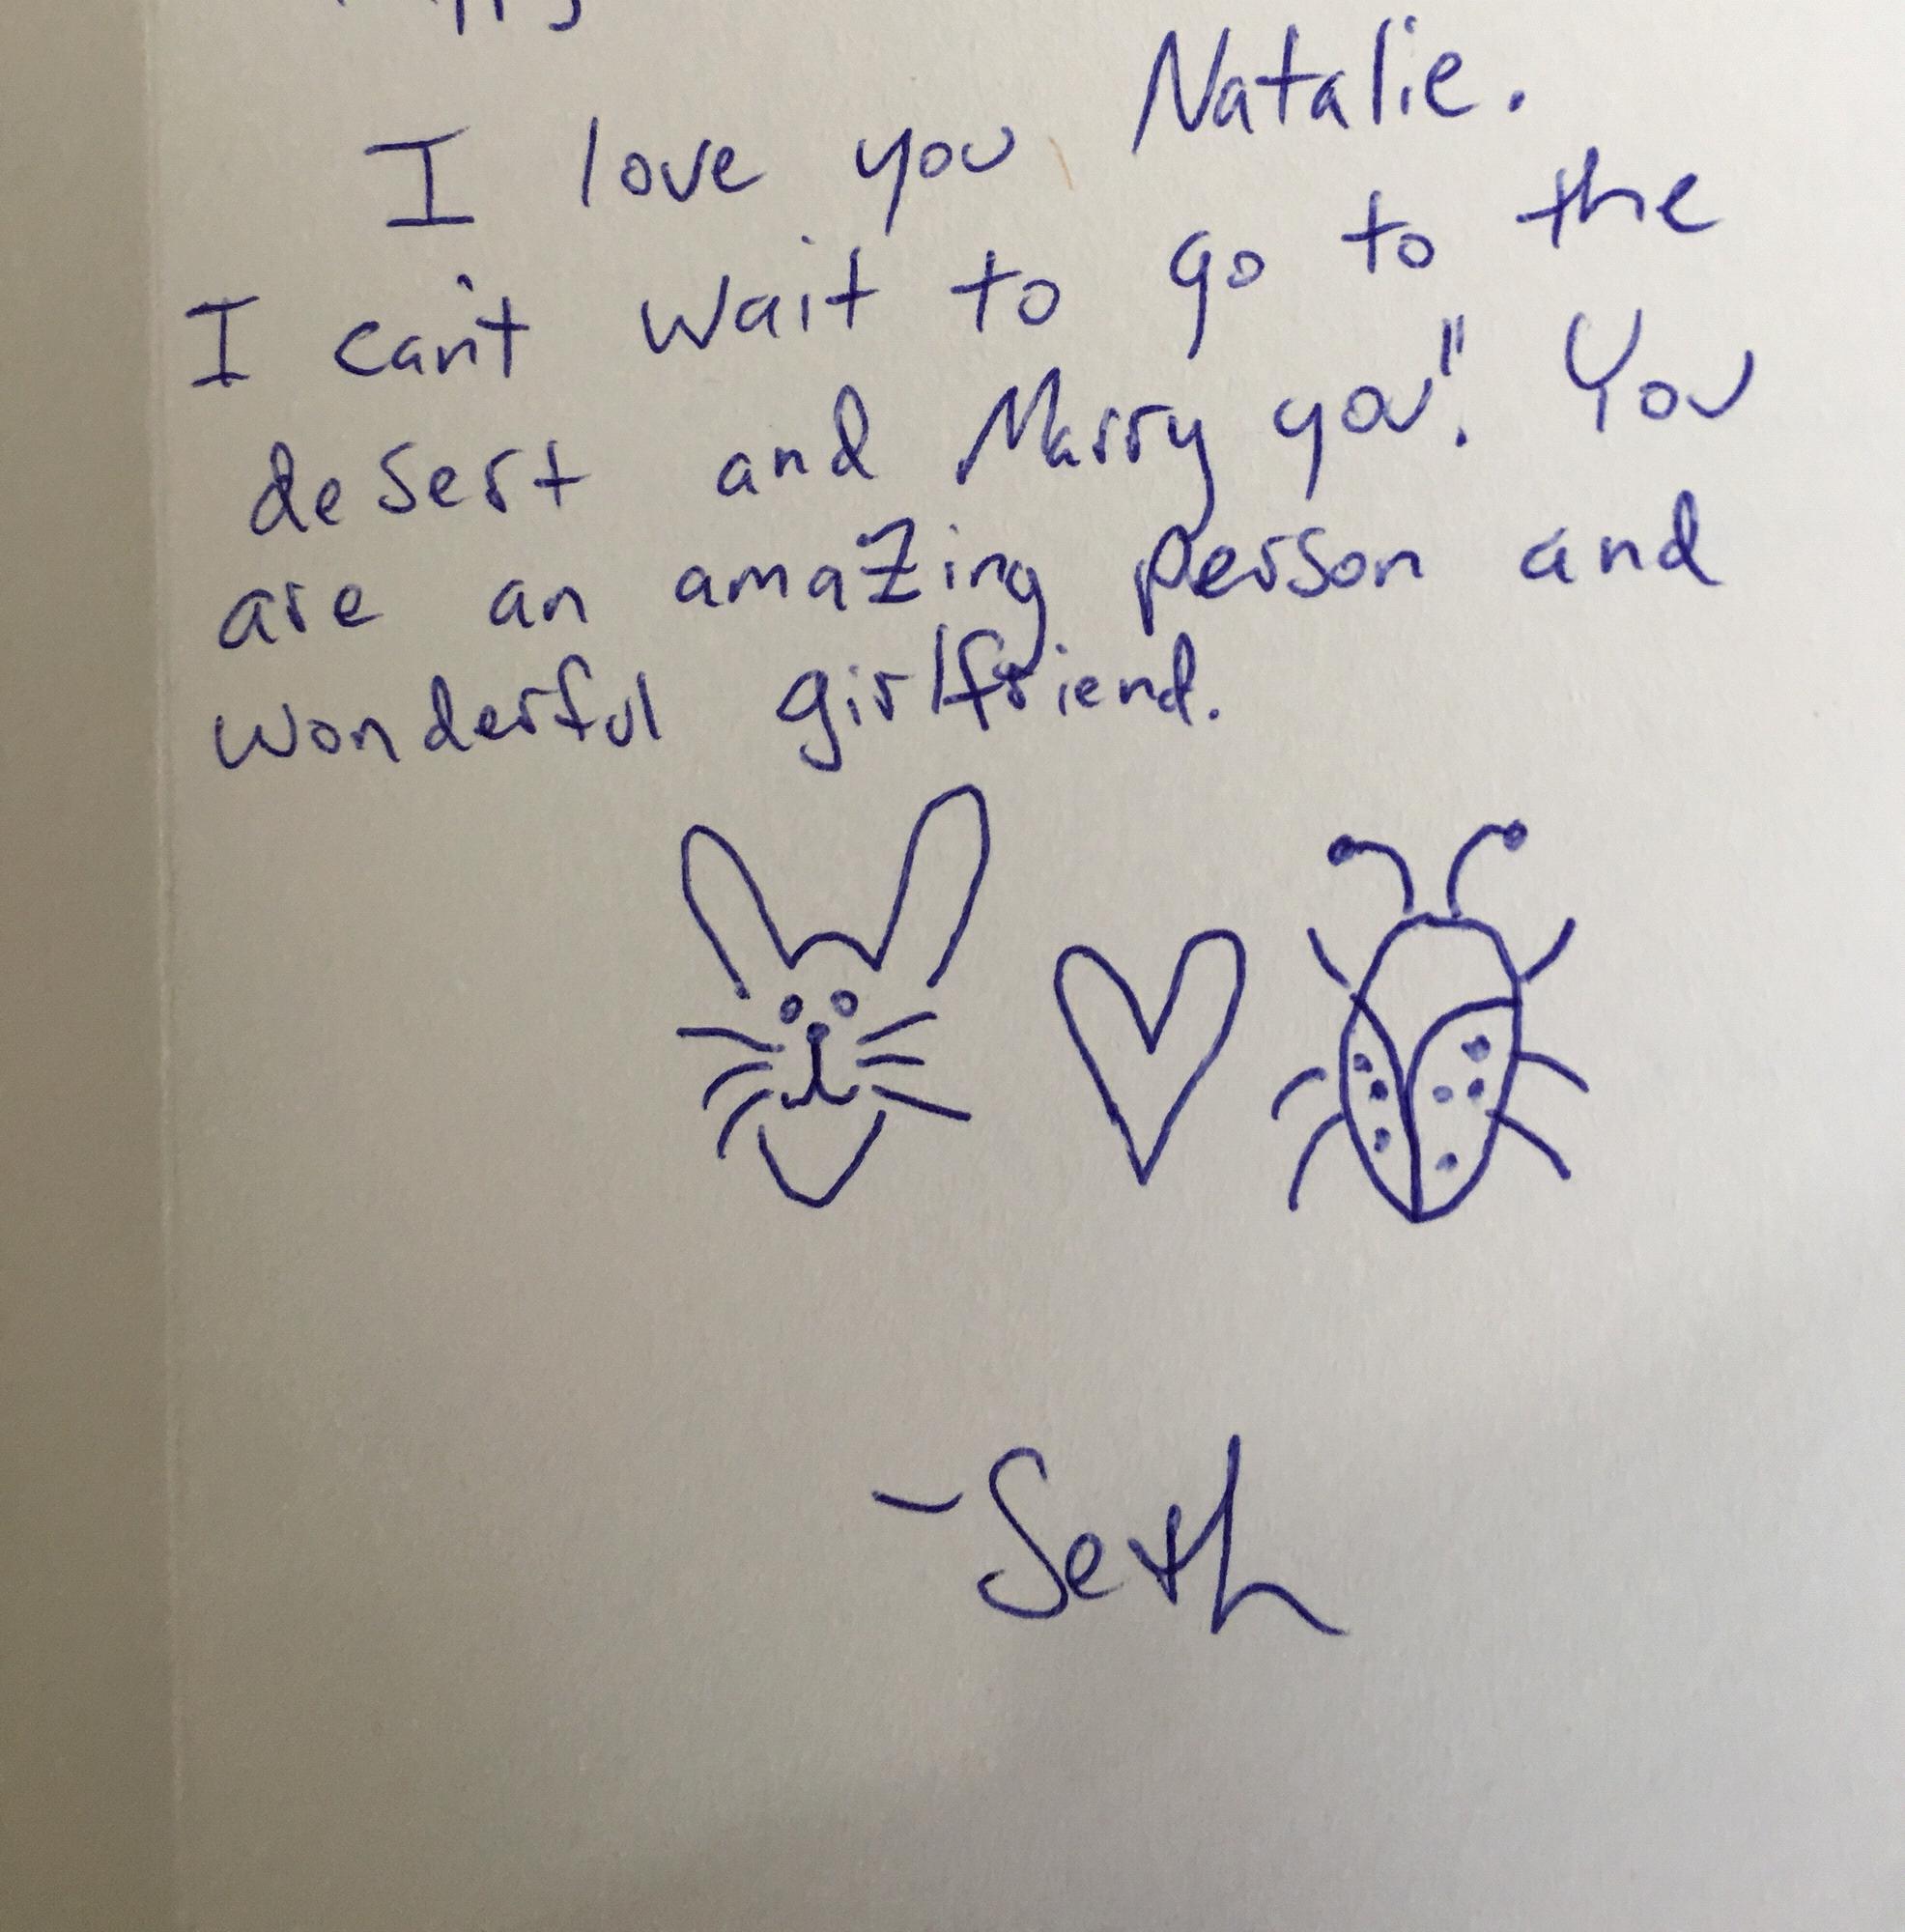 I love you Natalie.
I can't wait to go to the
desert and Marry you". You
are an amazing person and
wonderful girlfriend.
-Seth